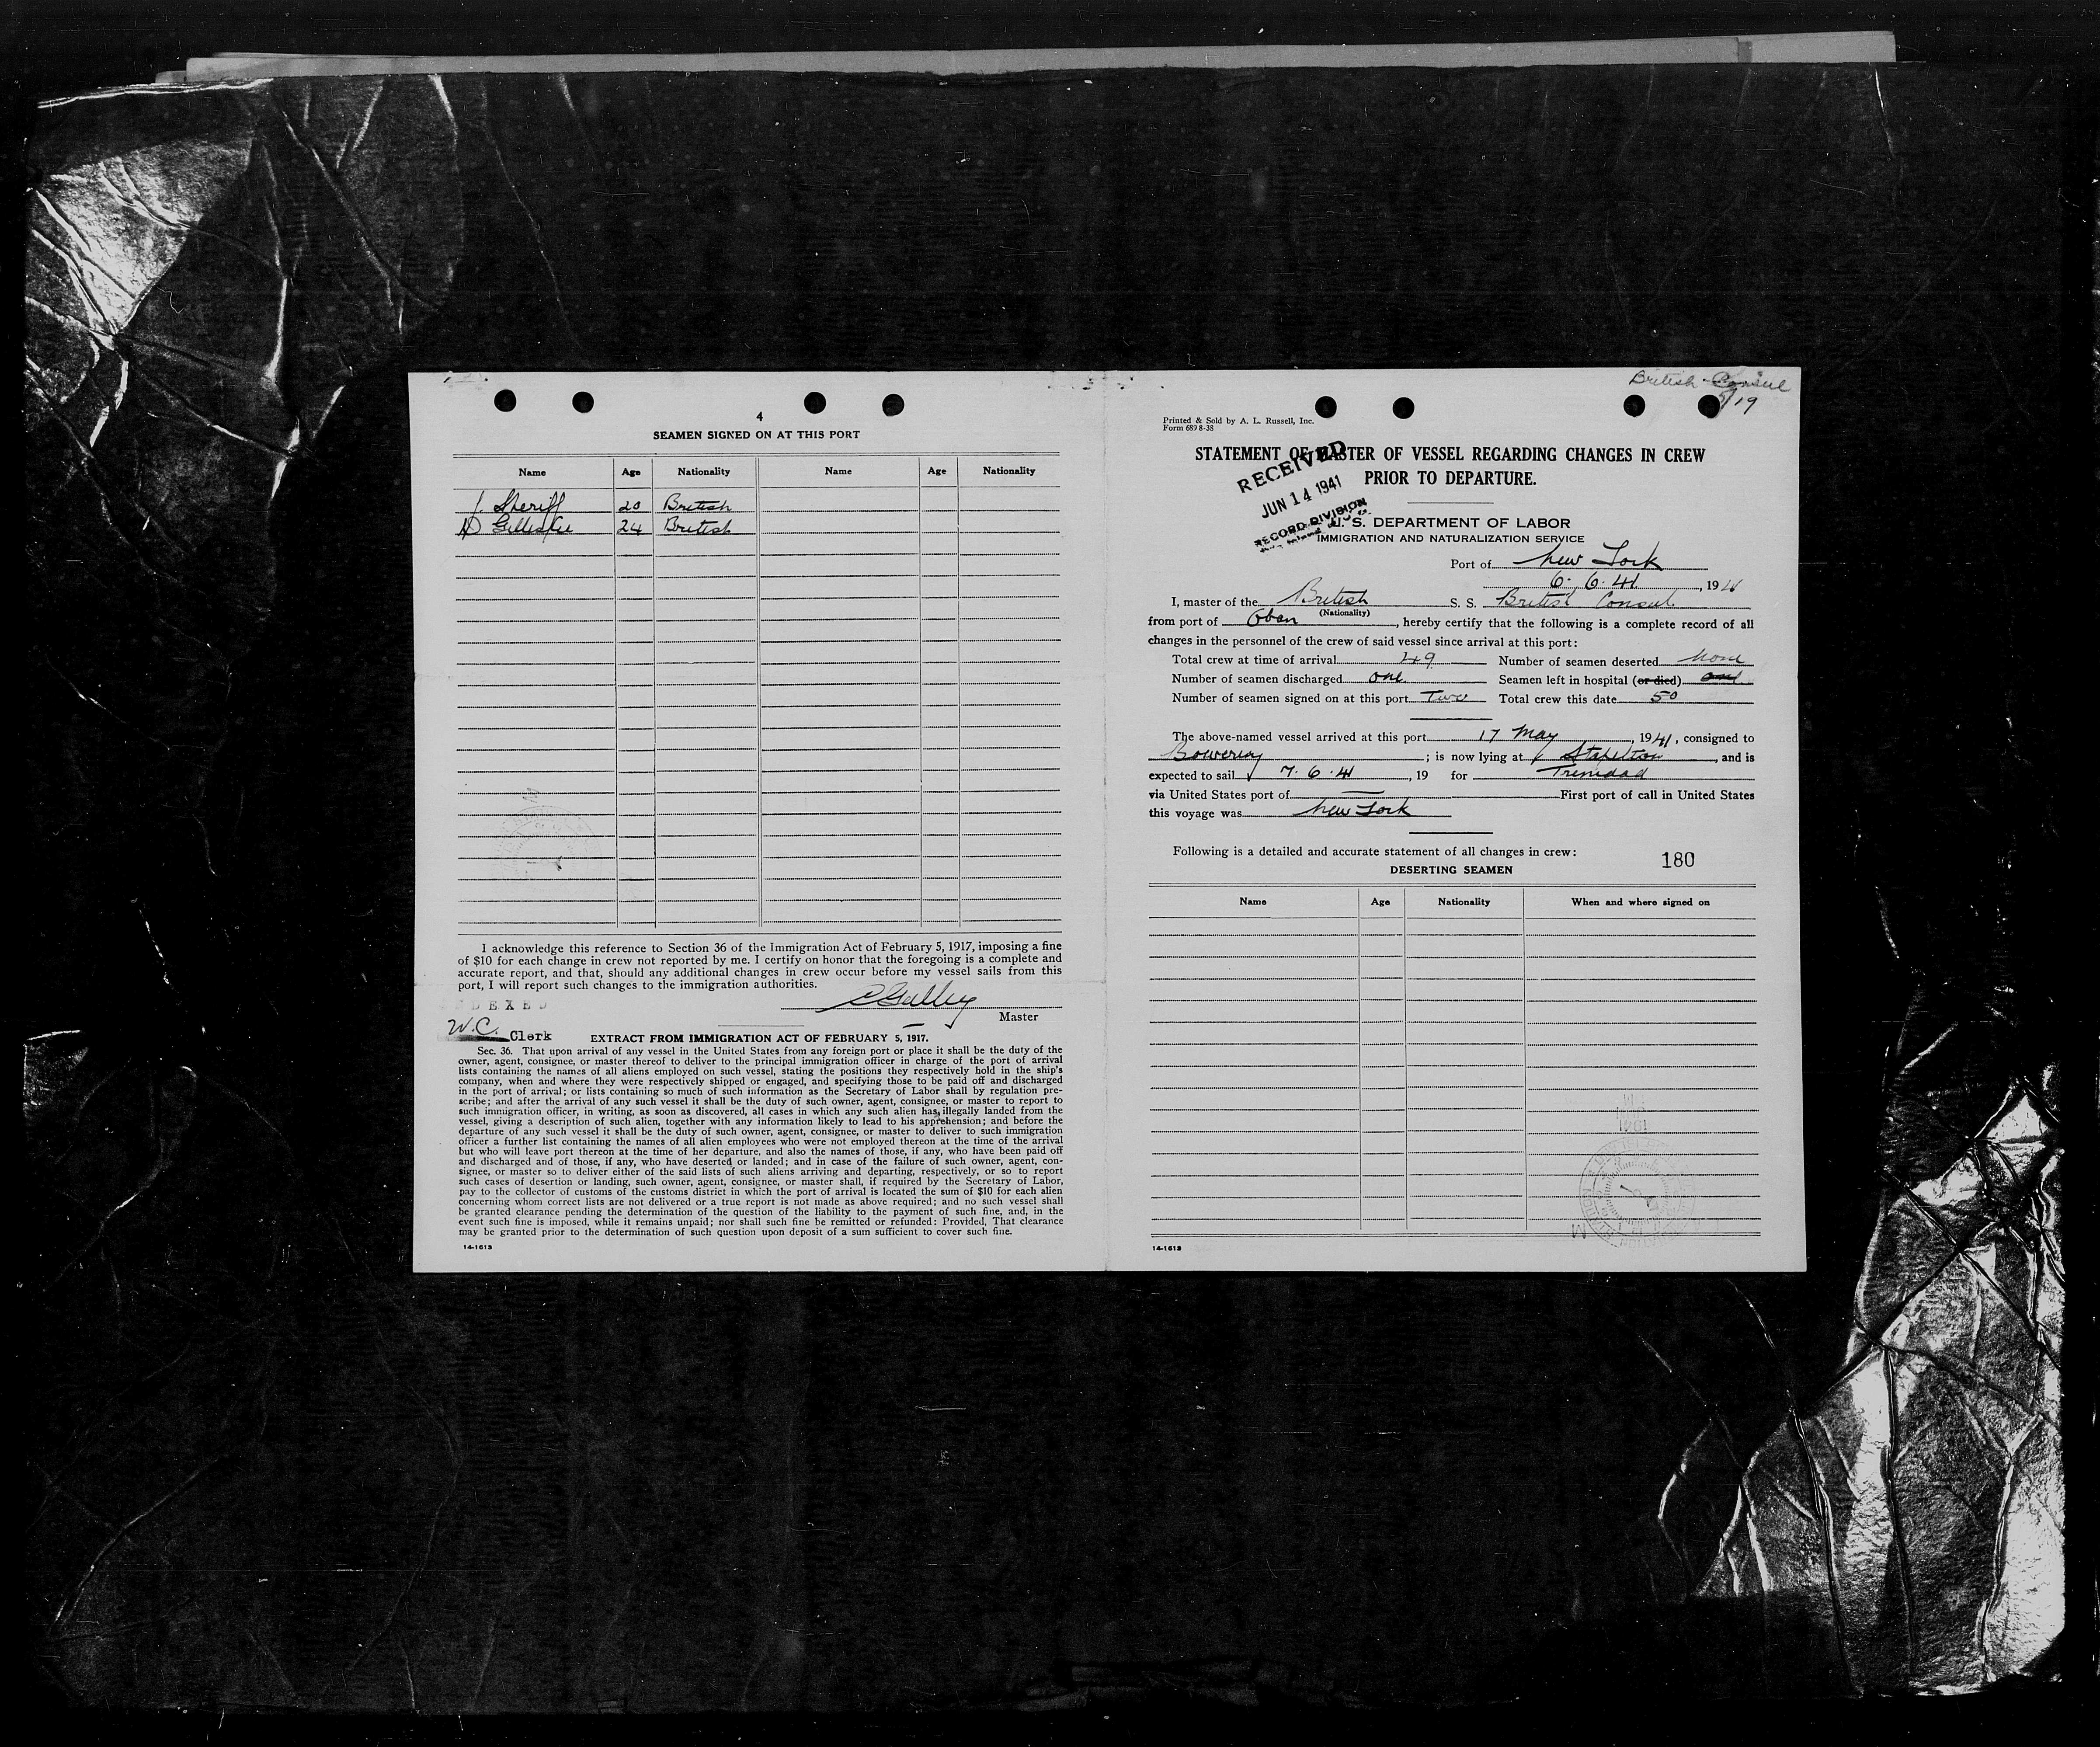 4
SEAMEN SIGNED ON AT THIS PORT
Name Age Nationality Name Age Nationality
J. Sheriff 20 British
D Gillespie 24 British
I acknowledge this reference to Section 36 of the Immigration Act of February 5, 1917, imposing a fine
of $10 for each change in crew not reported by me. I certify on honor that the foregoing is a complete and
accurate report, and that, should any additional changes in crew occur before my vessel sails from this
port, I will report such changes to the immigration authorities.
INDEXED
Master
W.C. Clerk
EXTRACT FROM IMMIGRATION ACT OF FEBRUARY 5, 1917.
Sec. 36. That upon arrival of any vessel in the United States from any foreign port or place it shall be the duty of the
owner, agent, consignee, or master thereof to deliver to the principal immigration officer in charge of the port of arrival
lists containing the names of all aliens employed on such vessel, stating the positions they respectively hold in the ship's
company, when and where they were respectively shipped or engaged, and specifying those to be paid off and discharged
in the port of arrival; or lists containing so much of such information as the Secretary of Labor shall by regulation pre-
scribe; and after the arrival of any such vessel it shall be the duty of such owner, agent, consignee, or master to report to
such immigration officer, in writing, as soon as discovered, all cases in which any such alien has illegally landed from the
vessel, giving a description of such alien, together with any information likely to lead to his apprehension; and before the
departure of any such vessel it shall be the duty of such owner, agent, consignee, or master to deliver to such immigration
officer a further list containing the names of all alien employees who were not employed thereon at the time of the arrival
but who will leave port thereon at the time of her departure, and also the names of those, if any, who have been paid off
and discharged and of those, if any, who have deserted or landed; and in case of the failure of such owner, agent, con-
signee, or master so to deliver either of the said lists of such aliens arriving and departing, respectively, or so to report
such cases of desertion or landing, such owner, agent, consignee, or master shall, if required by the Secretary of Labor,
pay to the collector of customs of the customs district in which the port of arrival is located the sum of $10 for each alien
concerning whom correct lists are not delivered or a true report is not made as above required; and no such vessel shall
be granted clearance pending the determination of the question of the liability to the payment of such fine, and, in the
event such fine is imposed, while it remains unpaid; nor shall such fine be remitted or refunded: Provided, That clearance
may be granted prior to the determination of such question upon deposit of a sum sufficient to cover such fine.
14-1613
British Consul
5/19
Printed & Sold by A. L. Russell, Inc.
Form 689 8-38
STATEMENT OF MASTER OF VESSEL REGARDING CHANGES IN CREW
PRIOR TO DEPARTURE.
RECEIVED
JUN 14 1941
RECORD DIVISION
U. S. DEPARTMENT OF LABOR
IMMIGRATION AND NATURALIZATION SERVICE
Port of New York
6. 6. 41, 1941
I, master of the British S. S. British Consul
(Nationality)
from port of Oban, hereby certify that the following is a complete record of all
changes in the personnel of the crew of said vessel since arrival at this port:
Total crew at time of arrival 49 Number of seamen deserted None
Number of seamen discharged one Seamen left in hospital (or died)
Number of seamen signed on at this port Two Total crew this date 50
The above-named vessel arrived at this port 17 May, 1941, consigned to
Bowering; is now lying at Stapelton, and is
expected to sail 7. 6. 41, 19 for Trinidad
via United States port of — First port of call in United States
this voyage was New York
Following is a detailed and accurate statement of all changes in crew:
180
DESERTING SEAMEN
Name Age Nationality When and where signed on
14-1613